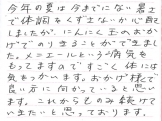 今年の夏は今までにない暑さ
で体調をくずさないか心配
しましたが、にんにく玉のおか
げでのりきることができました。
メニエールという病気を
もってますのですごく体には
気をつかいます。おかげ様で
良い方に向かっていると思い
ます。これからものみ続けて
いきたいと思っております。